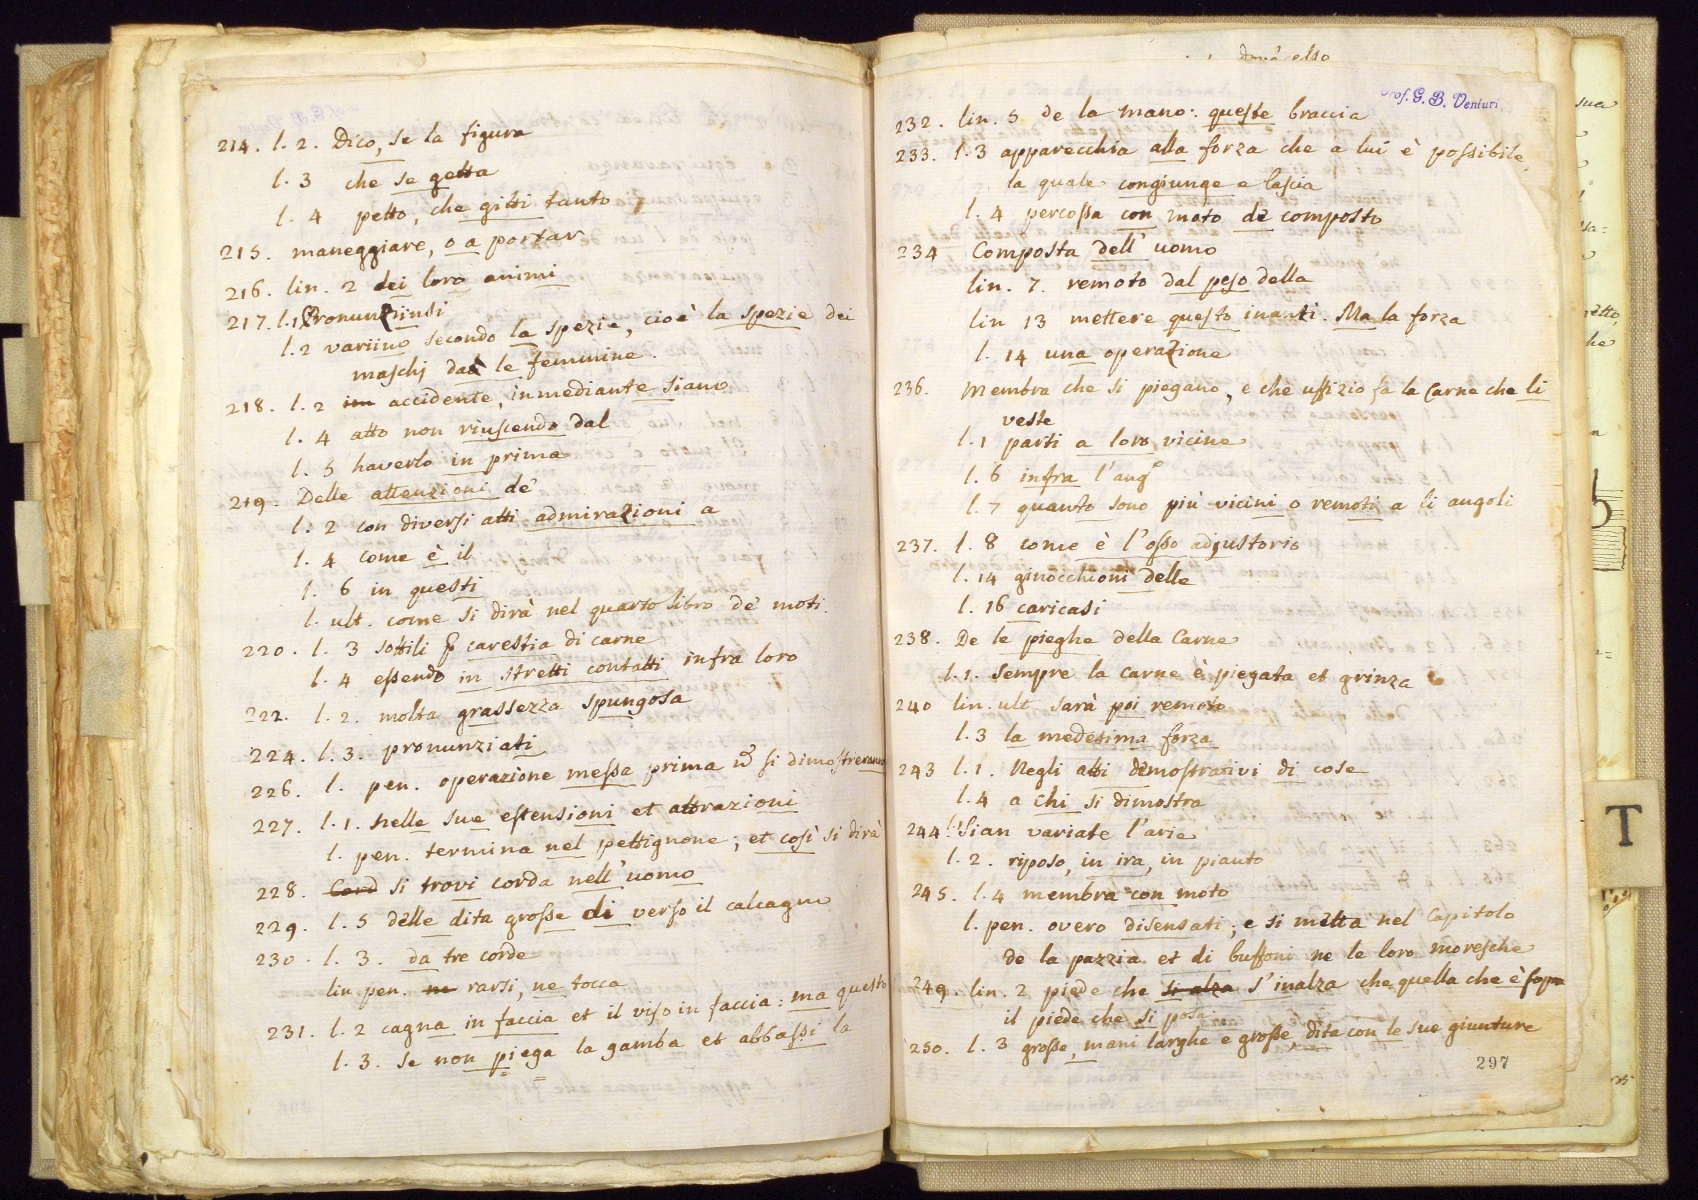 214. l. 2. Dico, se la figura
l. 3 che se getta
l. 4 petto, che gitti tanto
215. maneggiare, o a portar
216. lin. 2 dei loro animi
217. l. 1 Pronunziinsi
l. 2 variino secondo la spezie, cioè la spezie dei
maschj da le femmine.
218. l. 2 accidente, inmediante siano
l. 4 atto non riuscendo dal
l. 5 haverlo in prima
219. Delle attenzioni de'
l. 2 con diversi atti admirazioni a
l. 4 come è il
l. 6 in questi
l. ult. come si dirà nel quarto libro de' moti.
220. l. 3 sottili carestia di carne
l. 4 essendo in stretti contatti infra loro
222. l. 2. molta grassezza spungosa
224. l. 3. pronunziati
226. l. pen. operazione messa prima si dimostreranno
227. l. 1. nelle sue estensioni et attrazioni
l. pen. termina nel pettignone; et così si dirà
228. Cord si trovi corda nell'uomo
229. l. 5 delle dita grosse di verso il calcagno
230. l. 3. da tre corde
lin pen. ne rarsi, ne tocca
231. l. 2 cagna in faccia et il viso in faccia: ma questo
l. 3. se non piega la gamba et abbassi la
Prof. G. B. Venturi
232. lin. 5 de la mano: queste braccia
233. l. 3 apparecchia alla forza che a lui è possibile,
la quale congiunge e lascia
l. 4 percossa con moto di composto
234 Composta dell'uomo
lin. 7. remoto dal peso della
lin 13 mettere questo inanti. Ma la forza
l. 14 una operazione
236. Membra che si piegano, e che uffizio fa la Carne che li
veste
l. 1 parti a loro vicine
l. 6 infra l'ang.º
l. 7 quanto sono più vicini o remoti a li angoli
237. l. 8 come è l'osso adjustorio
l. 14 ginocchioni delle
l. 16 caricasi
238. De le pieghe della Carne
l. 1. Sempre la carne è piegata et grinza
240 lin. ult sarà poi remoto
l. 3 la medesima forza
243 l. 1. Negli atti dimostrativi di cose
l. 4 a chi si dimostra
244 l. 1 Sian variate l'arie
l. 2. riposo, in ira, in pianto
245. l. 4 membra con moto
l. pen. overo disensati; e si metta nel Capitolo
de la pazzia et di buffoni ne le loro moresche
249. lin. 2 piede che si alza s'inalza che quella che è sopra
il piede che si posa
250. l. 3 grosse, mani larghe e grosse, dita con le sue giunture
297
T